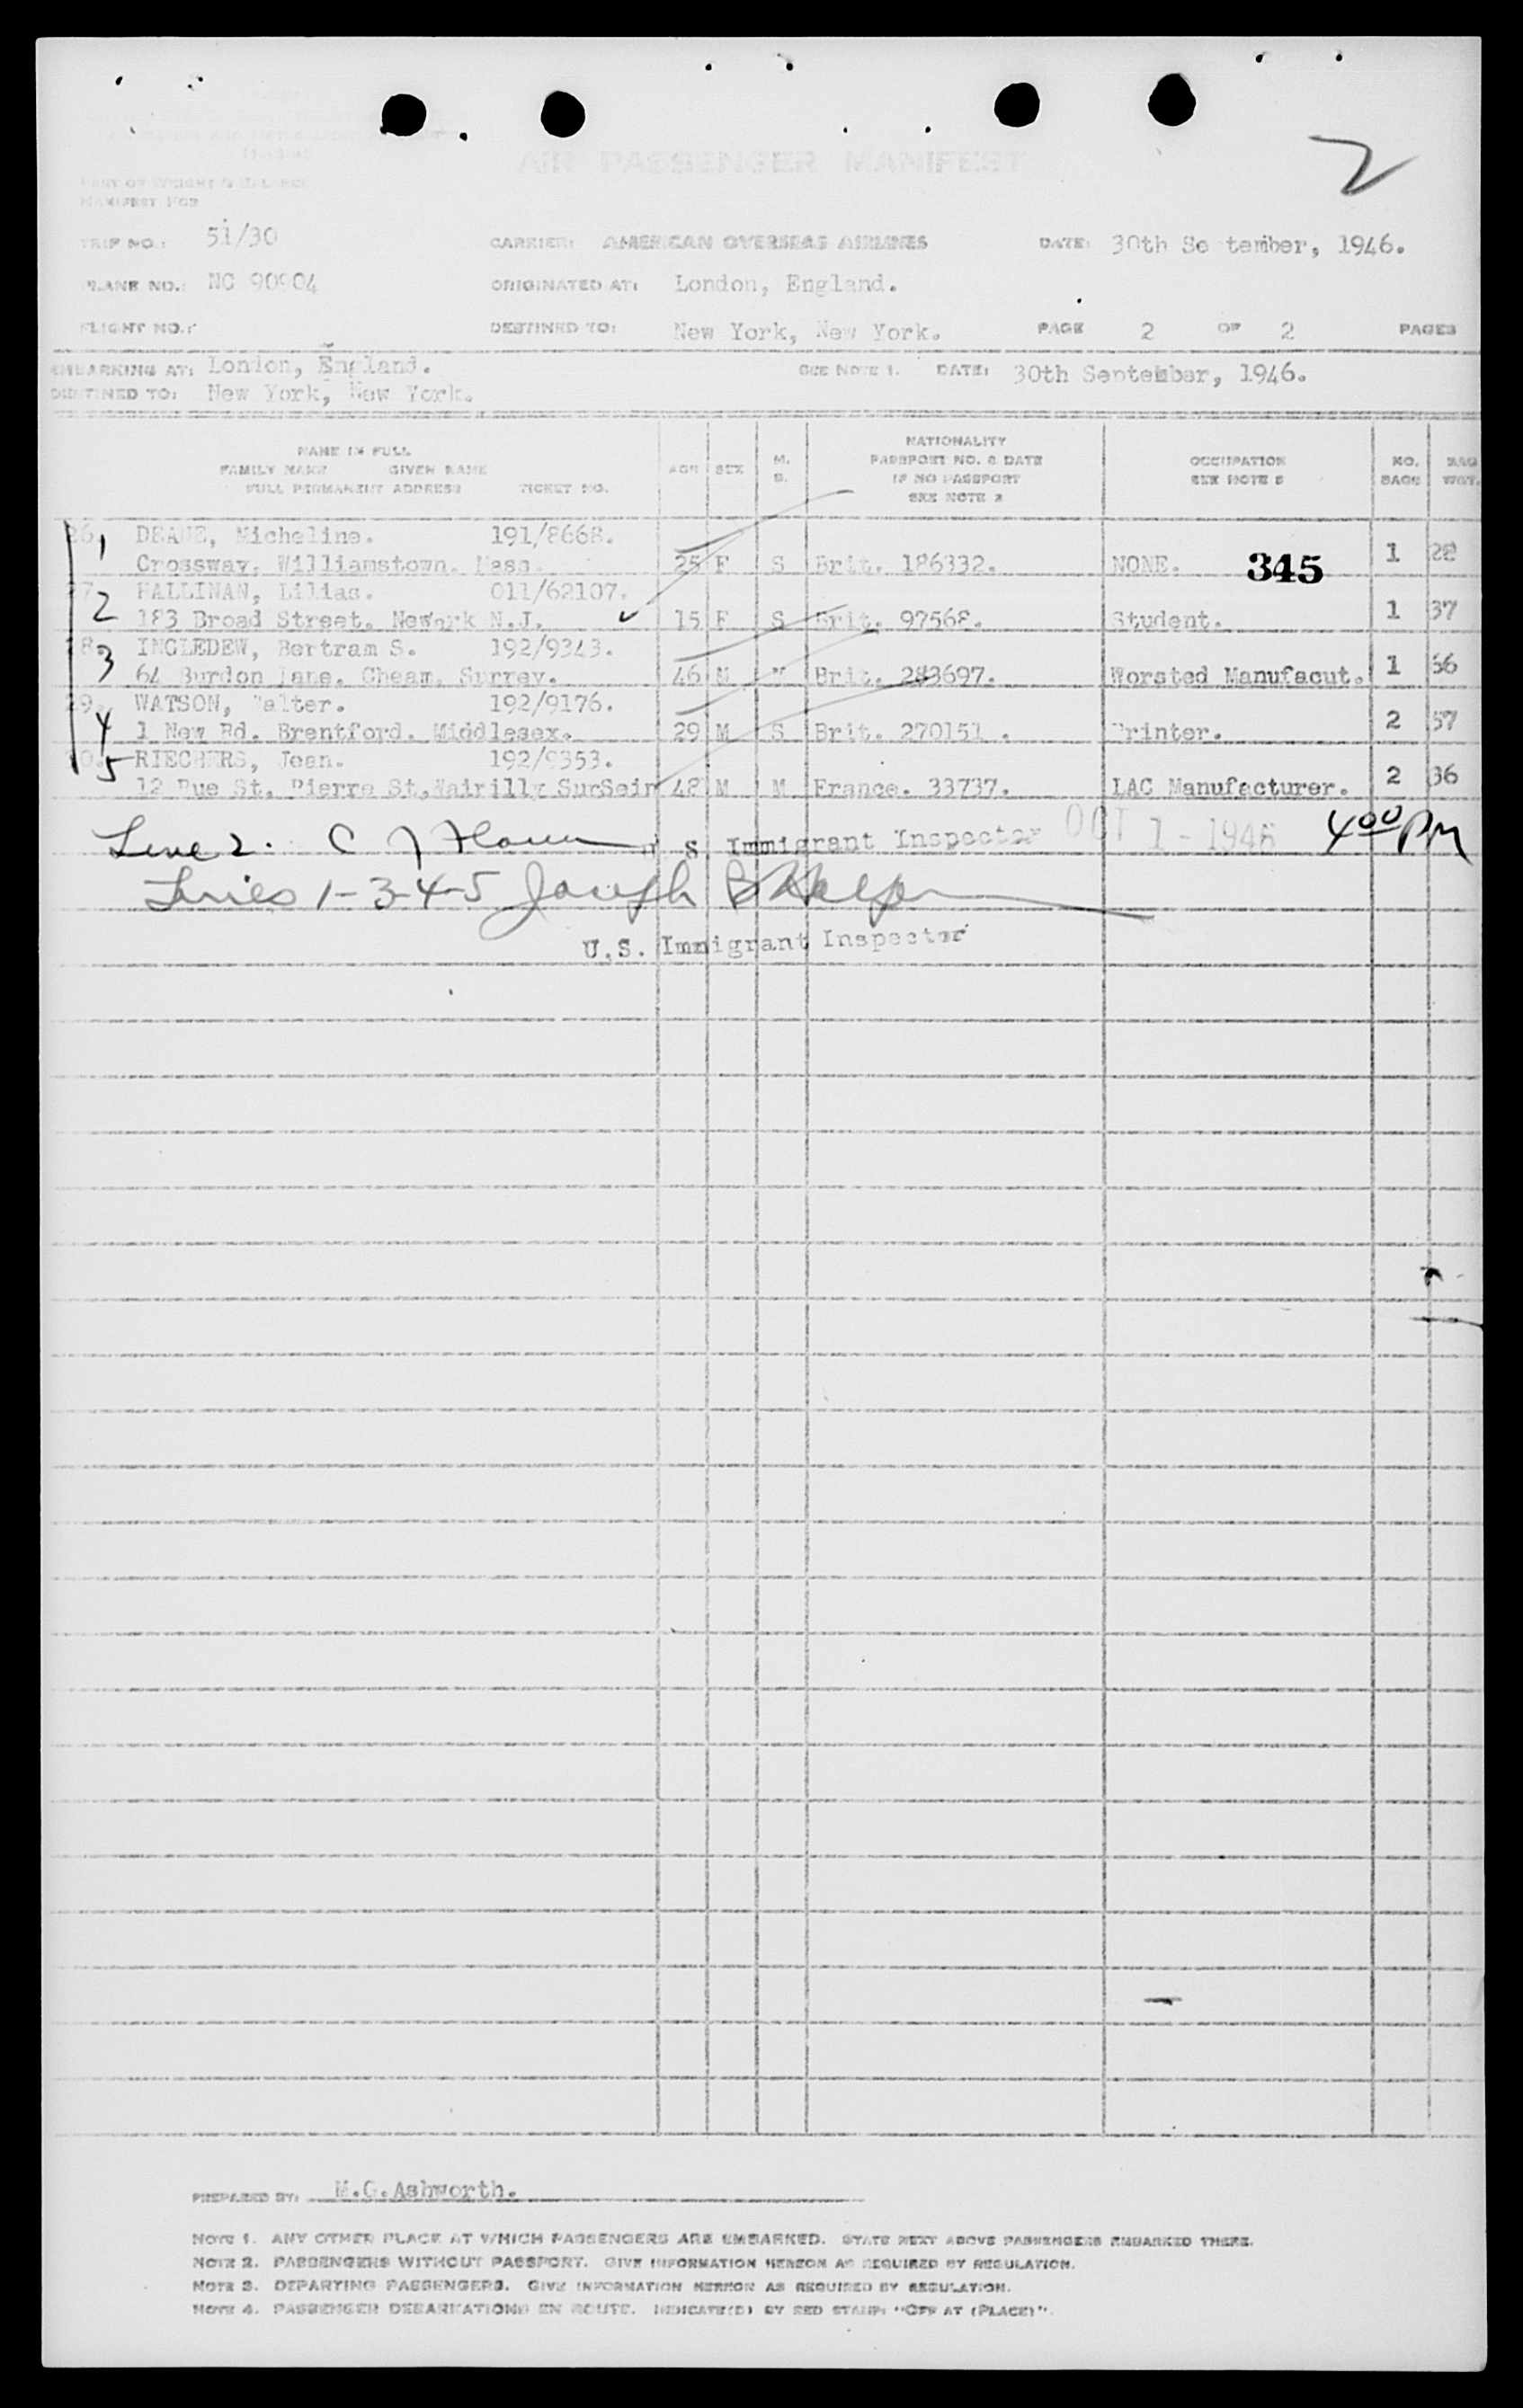 AIR PASSENGER MANIFEST
2
MANIFEST FOR
TRIP NO.: 51/30 CARRIER: AMERICAN OVERSEAS AIRLINES DATE: 30th Se tember, 1946.
PLANE NO.: NC 90904 ORIGINATED AT: London, England.
FLIGHT NO.: DESTINED TO: New York, New York. PAGE 2 OF 2 PAGES
EMBARKING AT: London, England. SEE NOTE 1. DATE: 30th September, 1946.
DESTINED TO: New York, New York.
NAME IN FULL
FAMILY NAME GIVEN NAME
FULL PERMANENT ADDRESS TICKET NO.
AGE SEX M. S.
NATIONALITY
PASSPORT NO. & DATE
IF NO PASSPORT
SEE NOTE 2
OCCUPATION
SEE NOTE 3
NO. BAGS
BAG WGT.
26. 1 Micheline. 191/8668.
Crossway, Williamstown. Mass. 25 F S Brit. 186332. NONE. 345 1 28
27. 2 HALLINAN, Lilias. 011/62107.
183 Broad Street. Newark N.J. 15 F S Brit. 97568. Student. 1 37
28. 3 INGLEDEW, Bertram S. 192/9343.
64 Burdon Lane. Cheam, Surrey. 46 M M Brit. 283697. Worsted Manufacut. 1 56
29. 4 WATSON, Walter. 192/9176.
1 New Rd. Brentford. Middlesex. 29 M S Brit. 270151 . Printer. 2 57
30. 5 RIECHERS, Jean. 192/9353.
12 Rue St. Pierre St, SurSein 48 M M France. 33737. LAC Manufacturer. 2 36
Line 2. C J U S Immigrant Inspector OCT 1 - 1946 4 00 PM
Lines 1-3-4-5 Joseph
U.S. Immigrant Inspector
PREPARED BY: M.G.Ashworth.
NOTE 1. ANY OTHER PLACE AT WHICH PASSENGERS ARE EMBARKED. STATE NEXT ABOVE PASSENGERS EMBARKED THERE.
NOTE 2. PASSENGERS WITHOUT PASSPORT. GIVE INFORMATION HEREON AS REQUIRED BY REGULATION.
NOTE 3. DEPARTING PASSENGERS. GIVE INFORMATION HEREON AS REQUIRED BY REGULATION.
NOTE 4. PASSENGER DEBARKATIONS EN ROUTE. INDICATE(D) BY RED STAMP: "OFF AT (PLACE)".